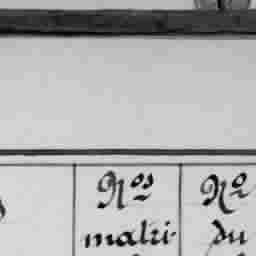 Nos No
matri- du